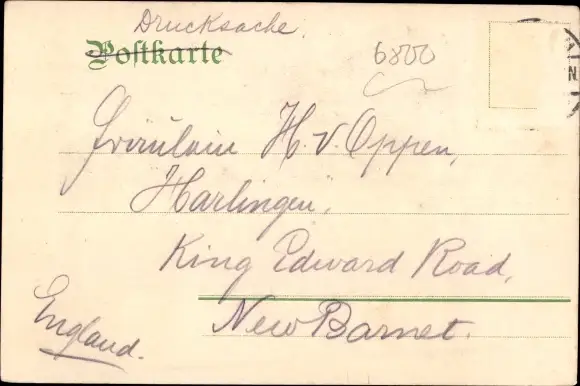 Drucksache.
Postkarte
6800
Fräulein H. v. Oppen,
Harlingen,
King Edward Road,
New Barnet.
England.